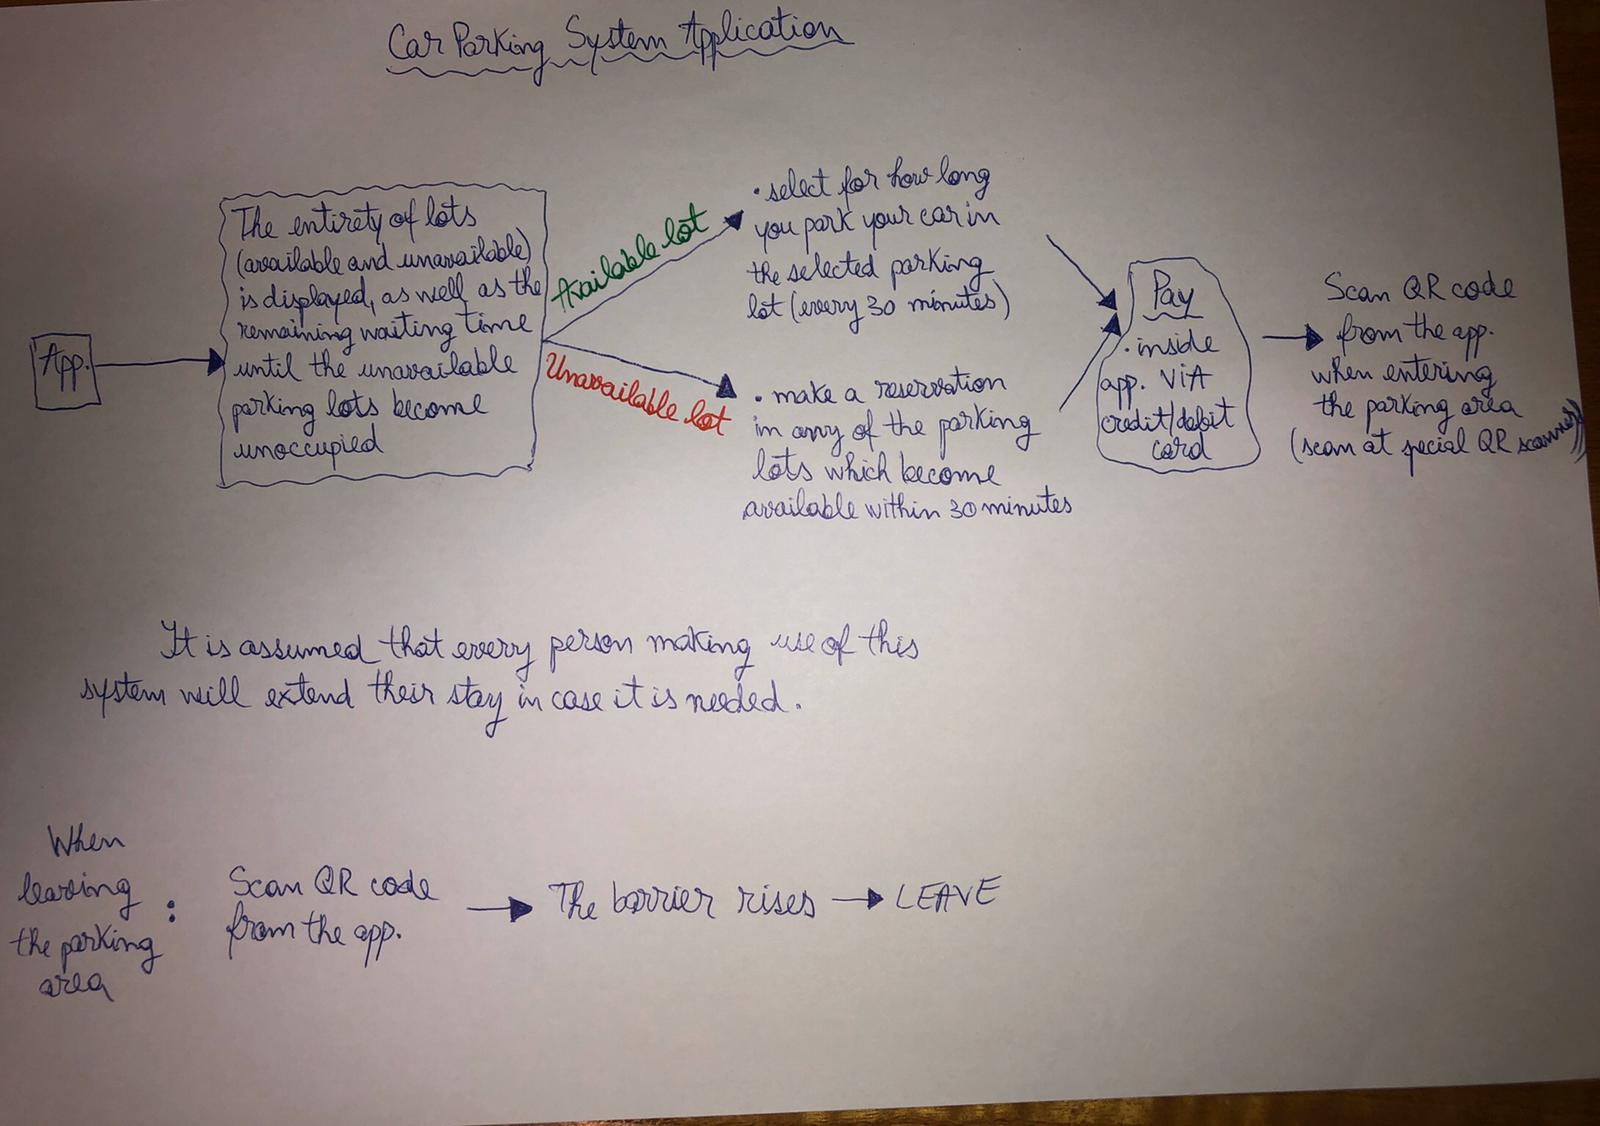 Car Parking System Application
App.
The entirety of lots
(available and unavailable)
is displayed, as well as the
remaining waiting time
until the unavailable
parking lots become
unoccupied
Available lot
Unavailable lot
• select for how long
you park your car in
the selected parking
lot (every 30 minutes)
• make a reservation
in any of the parking
lots which become
available within 30 minutes
Pay
• inside
app. ViA
credit/debit
card
Scan QR code
from the app.
when entering
the parking area
(scan at special QR scanner)
It is assumed that every person making use of this
system will extend their stay in case it is needed.
When
leaving
the parking
area
:
Scan QR code
from the app.
The barrier rises
LEAVE